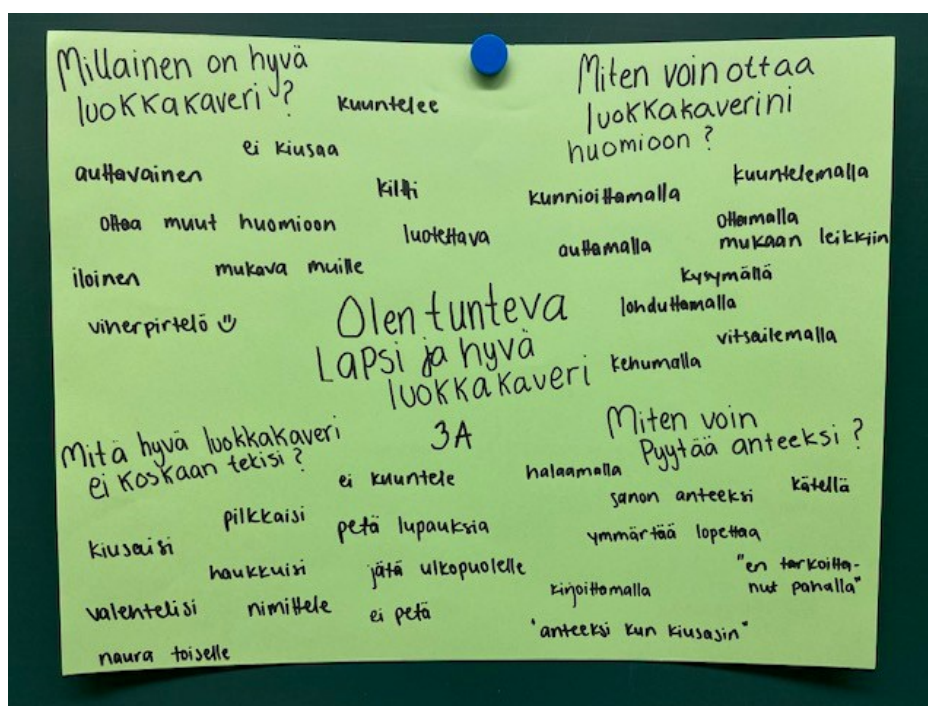 Millainen on hyvä
luokkakaveri?
kuuntelee
ei kiusaa
auttavainen
kiltti
ottaa muut huomioon
luotettava
iloinen
mukava muille
vinerpirtelö
Miten voin ottaa
luokkakaverini
huomioon?
kuuntelemalla
kunnioittamalla
ottamalla
mukaan leikkiin
auttamalla
kysymällä
lohduttamalla
vitsailemalla
kehumalla
Olen tunteva
Lapsi ja hyvä
luokkakaveri
3A
Mitä hyvä luokkakaveri
ei koskaan tekisi?
ei kuuntele
pilkkaisi
petä lupauksia
kiusaisi
haukkuisi
jätä ulkopuolelle
valehtelisi
nimittele
ei petä
naura toiselle
Miten voin
Pyytää anteeksi?
halaamalla
sanon anteeksi
kätellä
ymmärtää lopettaa
"en tarkoitta-
nut pahalla"
kirjoittamalla
"anteeksi kun kiusasin"